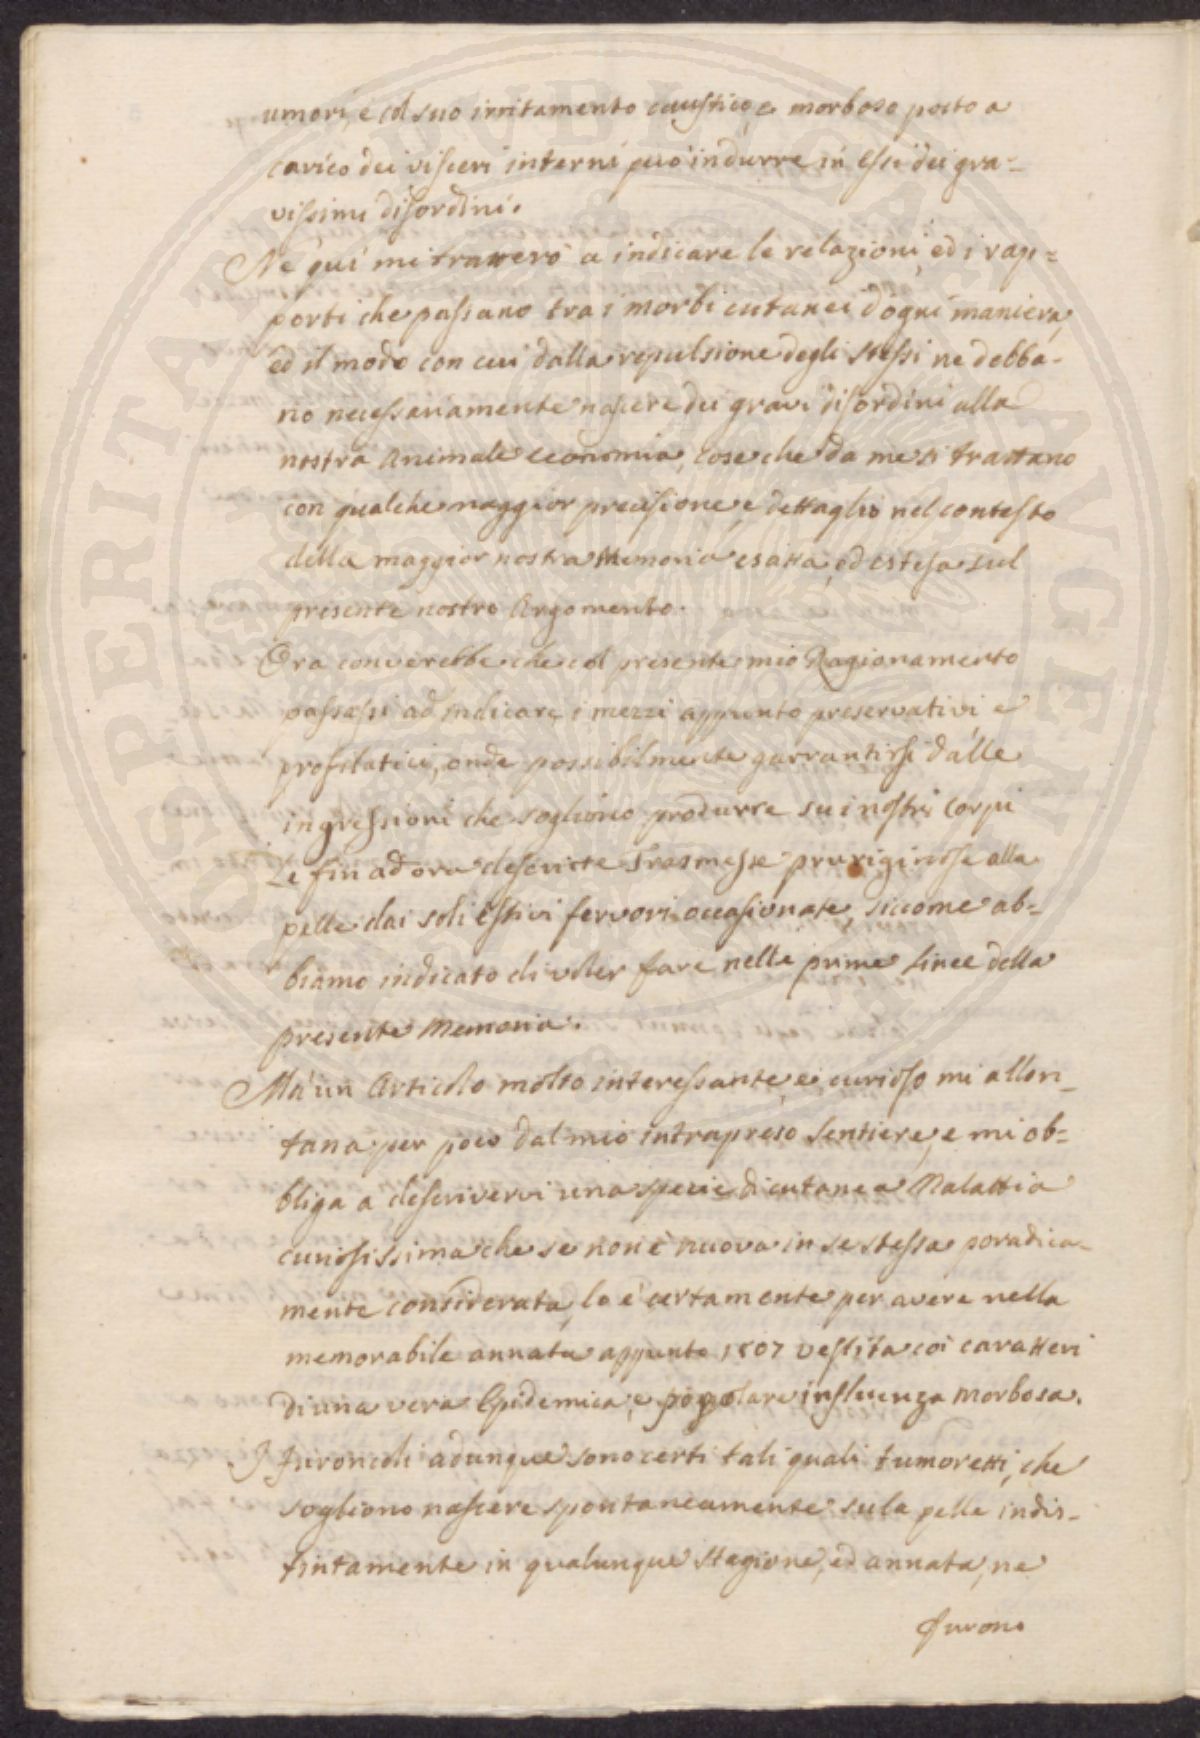 umori, e col suo irritamento caustico, e morboso posto a
carico dei visceri interni può indurre in essi dei gra=
vissimi disordini.
Né quì mi trarrerò a indicare le relazioni, ed i rap=
porti che passano tra i morbi cutanei d'ogni maniera,
ed il modo con cui dalla repulsione degli stessi ne debba-
no necessariamente nascere dei gravi disordini alla
nostra Animale economia, cose che da me si trattano
con qualche maggior precisione, e dettaglio nel contesto
della maggior nostra Memoria esatta, ed estesa sul
presente nostro Argomento.
Ora converebbe che col presente mio Ragionamento
passassi ad indicare i mezzi appunto preservativi, e
profilatici, onde possibilmente garrantirsi dalle
ingressioni che sogliono produrre su i nostri Corpi
Le fin ad ora descritte pruriginose alla
pelle dai soli estivi fervori occasionate, siccome ab=
biamo indicato di voler fare nelle prime linee della
presente Memoria.
Ma un Articolo molto interessante, e curioso mi allon-
tana per poco dal mio intrapreso sentiere, e mi ob=
bliga a descrivervi una specie di cutanea Malattia
curiosissima che se non è nuova in se stessa poradica-
mente considerata, lo è certamente per avere nella
memorabile annata appunto 1807 vestita coi caratteri
di una vera Epidemica, e popolare influenza morbosa.
I furoncoli adunque sono certi tali quali tumoretti, che
sogliono nascere spontaneamente sula pelle indis-
tintamente in qualunque stagione, ed annata, ne
furon.
PROSPERITATI PUBLICAE AVGENDAE